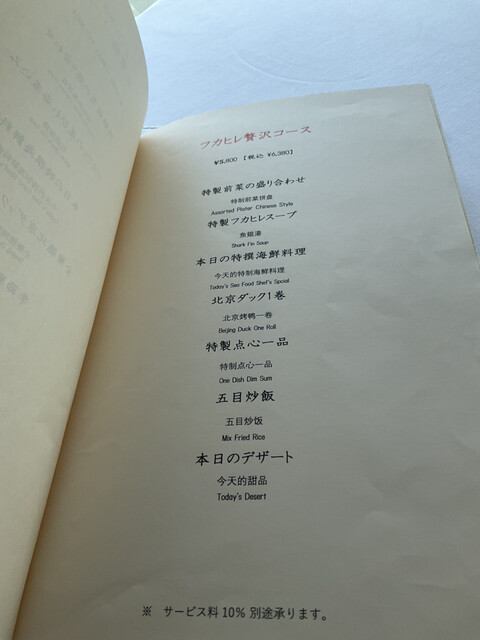 フカヒレ贅沢コース
¥5,800 【税込 ¥6,380】
特製前菜の盛り合わせ
特制前菜拼盘
Assorted Plater Chinese Style
特製フカヒレスープ
魚翅湯
Shark Fin Soup
本日の特撰海鮮料理
今天的特制海鲜料理
Today's Sea Food Shef's Spcial
北京ダック1巻
北京烤鸭一卷
Beijing Duck One Roll
特製点心一品
特制点心一品
One Dish Dim Sum
五目炒飯
五目炒饭
Mix Fried Rice
本日のデザート
今天的甜品
Today's Desert
※ サービス料10% 別途承ります。